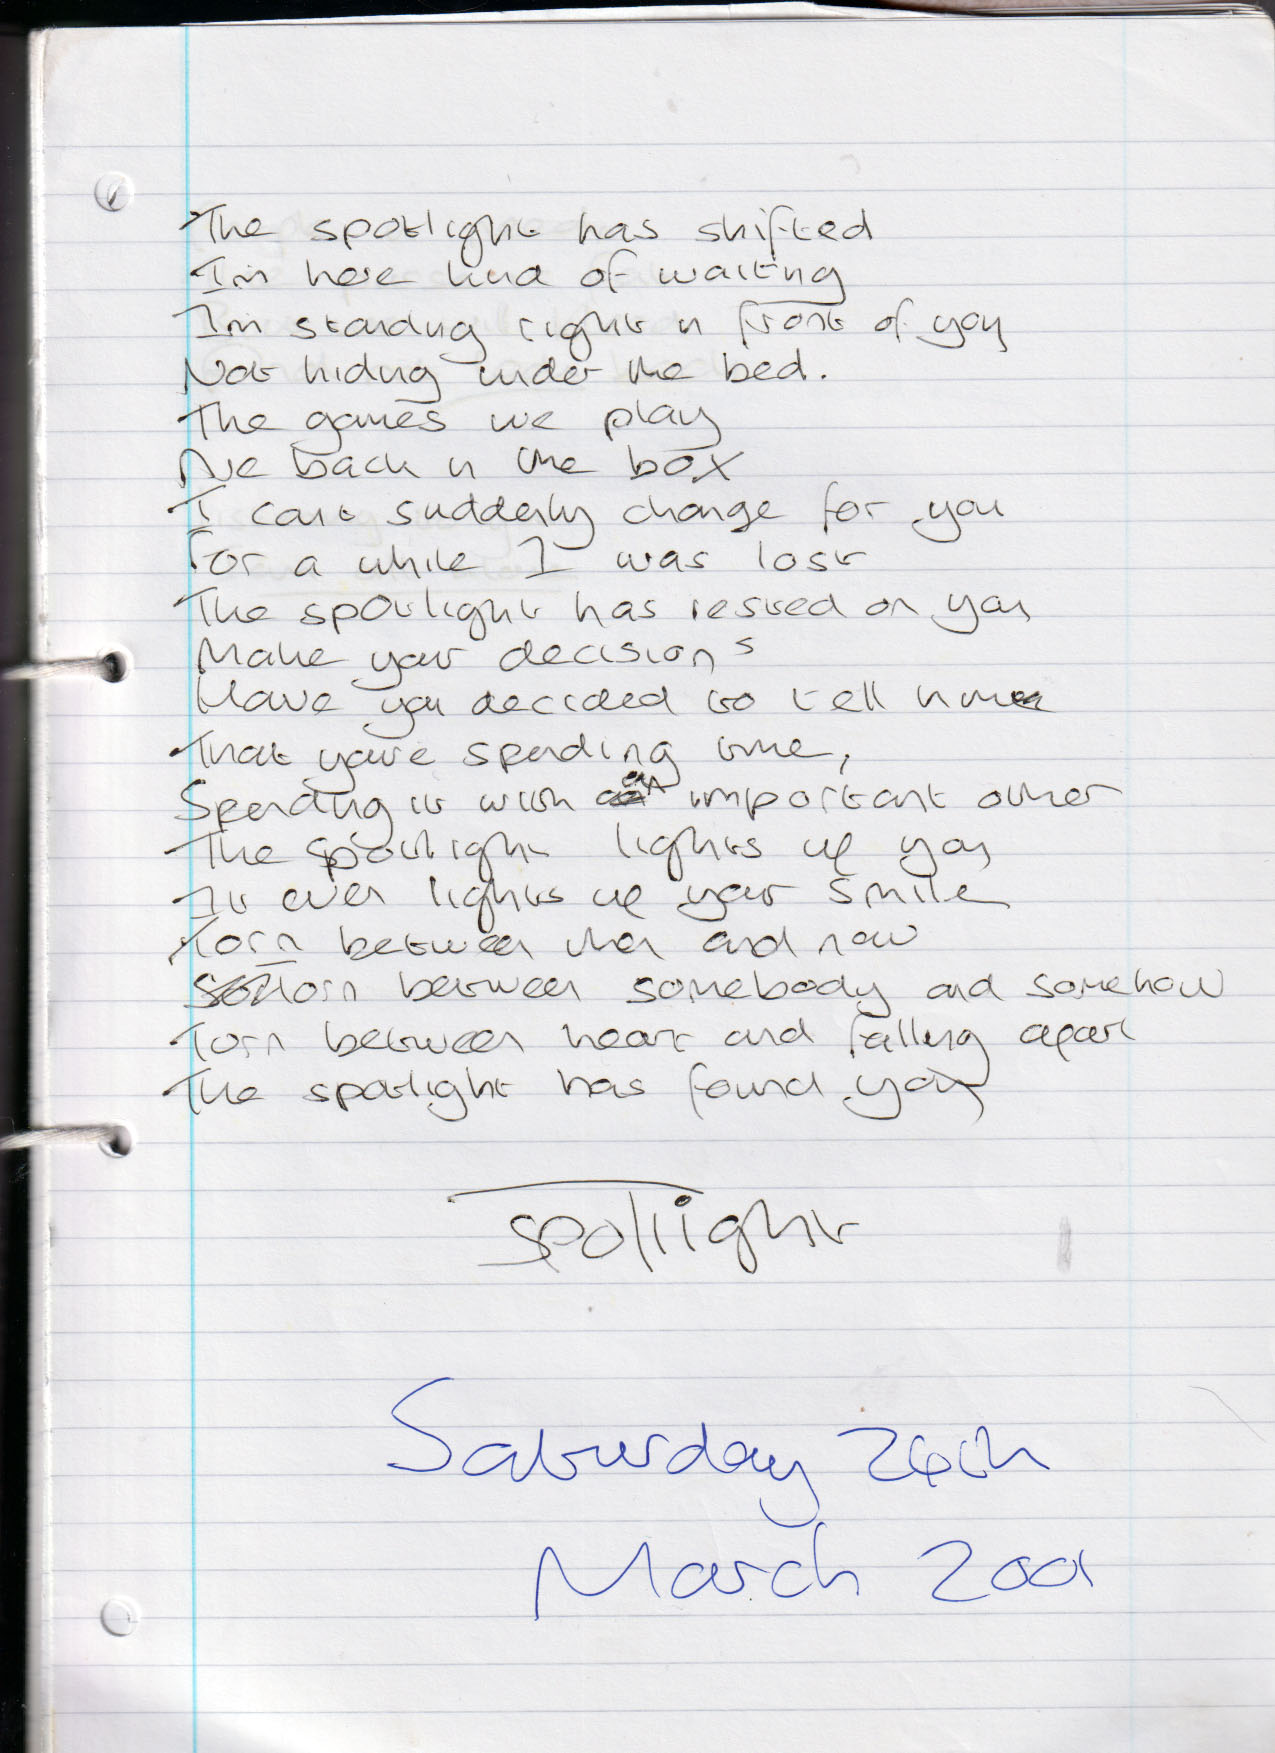 The spotlight has shifted
I'm here kind of waiting
I'm standing right in front of you
Not hiding under the bed.
The games we play
Are back in the box
I cant suddenly change for you
For a while I was lost
The spotlight has rested on you
Make your decisions
Have you decided to tell him
That you're spending time,
Spending it with an important other
The spotlight lights up you
It even lights up your smile
Torn between then and now
Torn between somebody and somehow
Torn between heart and falling apart
The spotlight has found you
Spotlight
Saturday
March